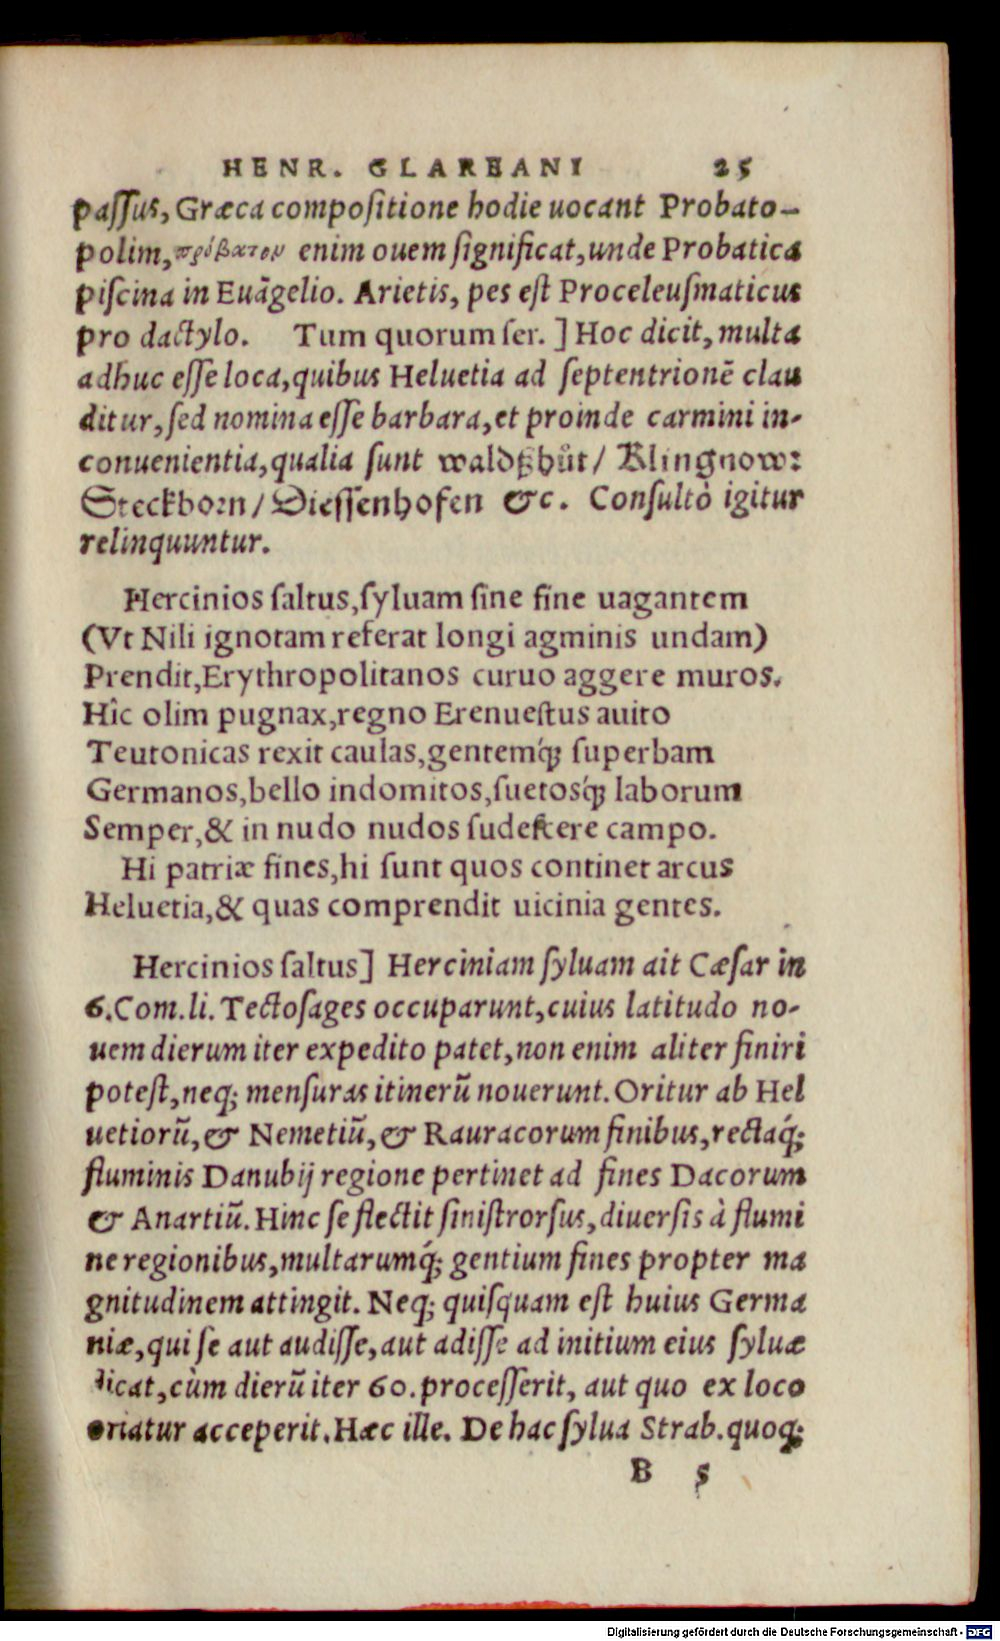 HENR. GLAREANI 25
paſſus, Græca compoſitione hodie uocant Probato-
polim, πρόβατον enim ouem ſignificat, unde Probatica
piſcina in Euāgelio. Arietis, pes eſt Proceleuſmaticus
pro dactylo. Tum quorum ſer. ] Hoc dicit, multa
adhuc eſſe loca, quibus Heluetia ad ſeptentrionē clau
ditur, ſed nomina eſſe barbara, et proinde carmini in-
conuenientia, qualia ſunt waldtzhůt / Klingnow:
Steckborn / Dieſſenhofen &c. Conſultò igitur
relinquuntur.
Hercinios ſaltus, ſyluam ſine fine uagantem
(Vt Nili ignotam referat longi agminis undam)
Prendit, Erythropolitanos curuo aggere muros.
Hîc olim pugnax, regno Erenueſtus auito
Teutonicas rexit caulas, gentemq́; ſuperbam
Germanos, bello indomitos, ſuetosq́; laborum
Semper, & in nudo nudos ſudeſcere campo.
Hi patriæ fines, hi ſunt quos continet arcus
Heluetia, & quas comprendit uicinia gentes.
Hercinios ſaltus] Herciniam ſyluam ait Cæſar in
6. Com. li. Tectoſages occuparunt, cuius latitudo no-
uem dierum iter expedito patet, non enim aliter finiri
poteſt, neq; menſuras itinerū nouerunt. Oritur ab Hel
uetiorū, & Nemetiū, & Rauracorum finibus, rectaq́;
fluminis Danubij regione pertinet ad fines Dacorum
& Anartiū. Hinc ſe flectit ſiniſtrorſus, diuerſis à flumi
ne regionibus, multarumq́; gentium fines propter ma
gnitudinem attingit. Neq; quiſquam eſt huius Germa
niæ, qui ſe aut audiſſe, aut adiſſe ad initium eius ſyluæ
dicat, cùm dierū iter 60. proceſſerit, aut quo ex loco
oriatur acceperit. Hæc ille. De hac ſylua Strab. quoq;
B 5
Digitalisierung gefördert durch die Deutsche Forschungsgemeinschaft - DFG